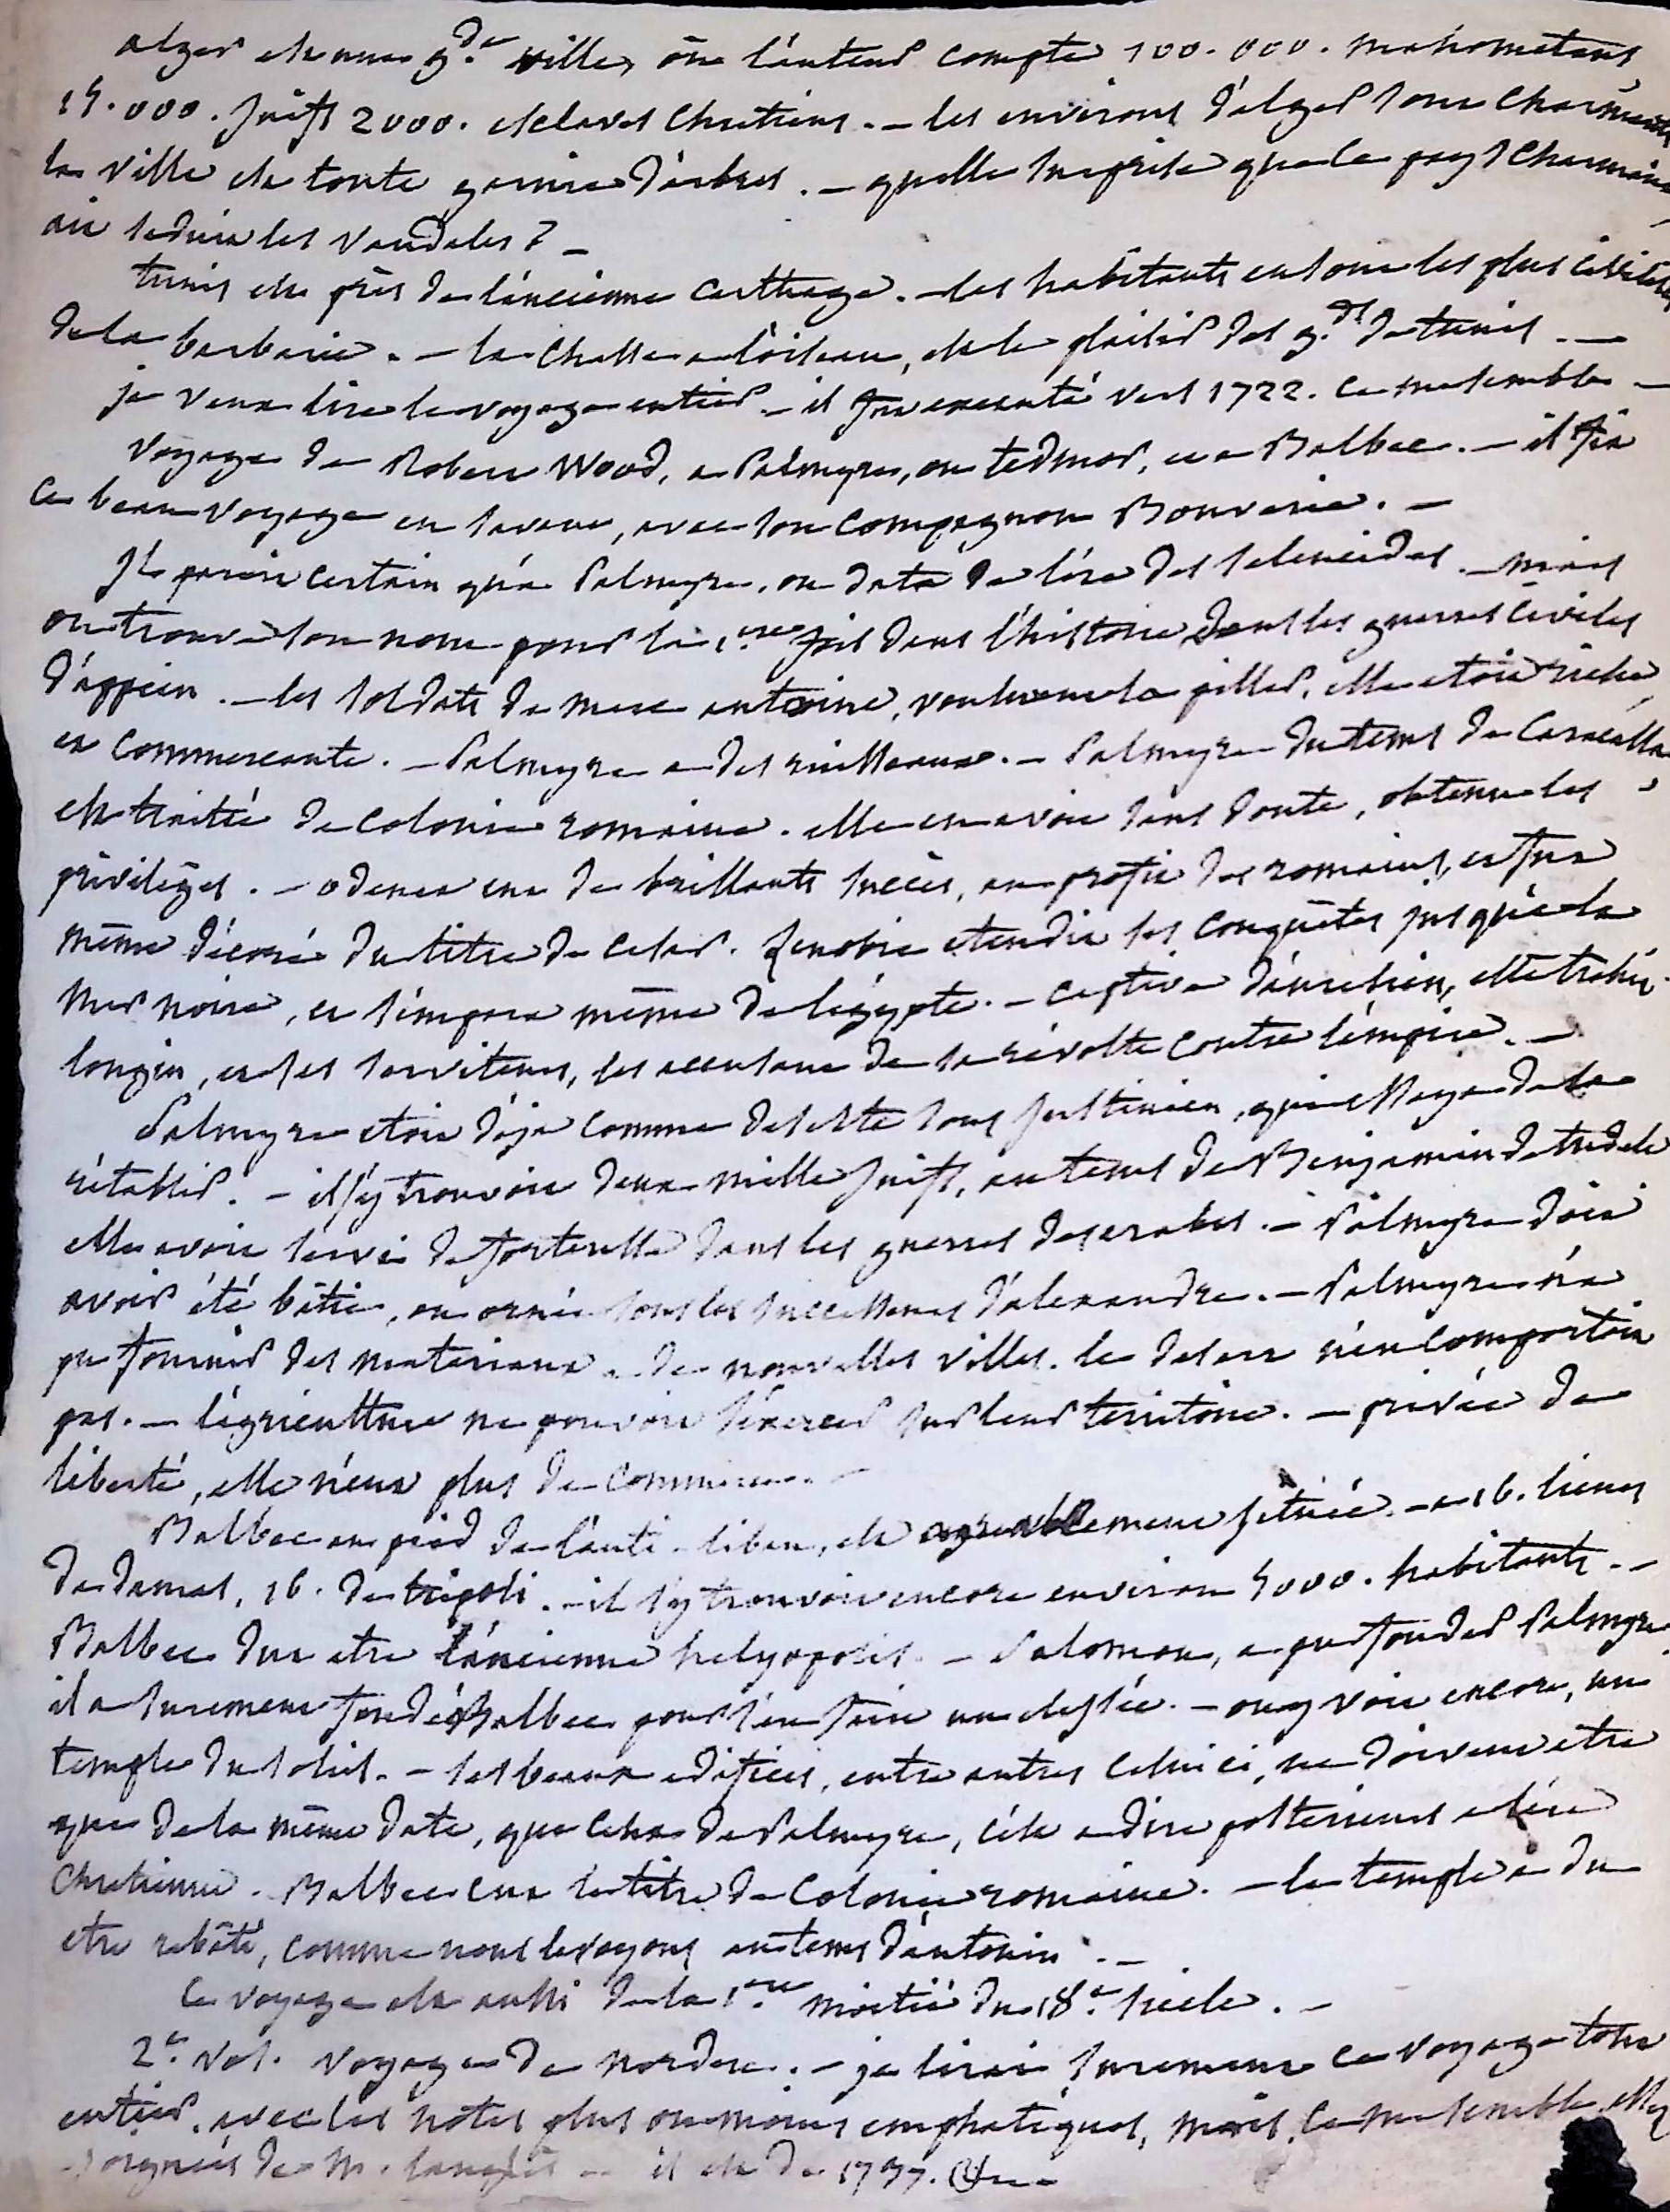 alger est une g.de ville, où l'auteur compte 100.000. mahometans
15.000. juifs 2000. esclaves chretiens. — les environs d'alger sont charmants
la ville est toute garnie d'arbres. — quelle surprise que le pays charmant
ait seduit les vandales? —
tunis est près de l'ancienne carthage. — les habitants en sont les plus civilisés
de la barbarie. — la chasse a l'oiseau, est le plaisir des g.ds de tunis. —
je veux lire le voyage entier. — il fut executé vers 1722. ce me semble —
voyage de Robert Wood, a Palmyre, ou tedmor, et a Balbec. — il fit
ce beau voyage en savant, avec son compagnon Bouverie. —
Il paroit certain qu'a Palmyre, on date de l'ère des seleucides. — mais
on trouve son nom pour la 1.ere fois dans l'histoire dans les guerres civiles
d'appien. — les soldats de marc antoine, voulurent la piller, elle etoit riche
et commercante. — Palmyre a des ruisseaux. — Palmyre du tems de Caracalla
est traitée de colonie romaine. elle en avoit sans doute, obtenu les
privilèges. — odenat eut de brillants succès, au profit des romains, et fut
même décoré du titre de cesar. Zenobie etendit ses conquêtes jusqu'a la
mer noire, et s'empara même de l'égypte. — captive d'aurelien, elle trahit
longin, et ses serviteurs, les accusant de sa révolte contre l'empire. —
Palmyre etoit déja comme deserte sous justinien, qui essaya de la
rétablir. — il s'y trouvoit deux mille juifs, au tems de Benjamin de tudele
elle avoit servi de forteresse dans les guerres des arabes. — Palmyre doit
avoir été bâtie, ou ornée sous les successeurs d'alexandre. — Palmyre n'a
pu fournir des materiaux a de nouvelles villes. le desert n'en comportoit
pas. — l'agriculture ne pouvoit s'exercer sur leur territoire. — privée de
liberté, elle n'eut plus de commerce. —
Balbec au pied de l'anti-liban, est agreablement située. — a 16. lieues
de damas, 16. de tripoli. — il s'y trouvoit encore environ 5000. habitants. —
Balbec dut etre l'ancienne helyopolis. — Salomon, a pu fonder Palmyre
il a surement fondé Balbec pour s'en faire un elysée. — on y voit encore, un
temple du soleil. — ses beaux edifices, entre autres celui ci, ne doivent etre
que de la même date, que ceux de Palmyre, c'est a dire posterieurs a l'ère
chretienne. Balbec eut le titre de colonie romaine. — le temple a du
etre rebâti, comme nous le voyons au tems d'antonin. —
ce voyage est aussi de la 1.ere moitié du 18.e siecle. —
2.e vol. voyage de norden. — je lirai surement ce voyage tout
entier, avec les notes plus ou moins emphatiques, mais, ce me semble,
soignées de m. langlès — il est de 1737.